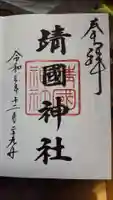 奉拝
靖國神社
靖國神社
令和五年十二月三十日